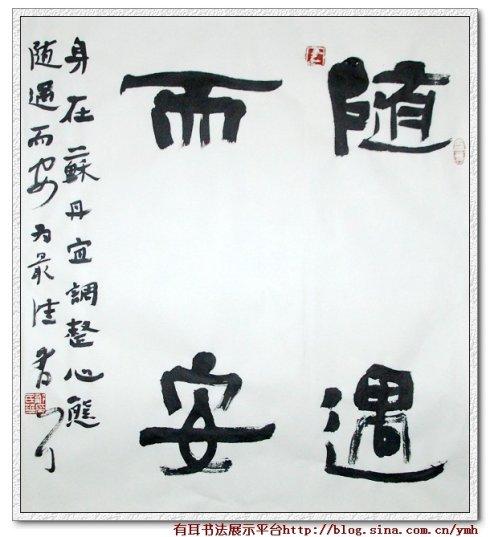 随遇
而安
身在蘇丹宜調整心態
随遇而安为最佳
有耳书法展示平台http://blog.sina.com.cn/ymh